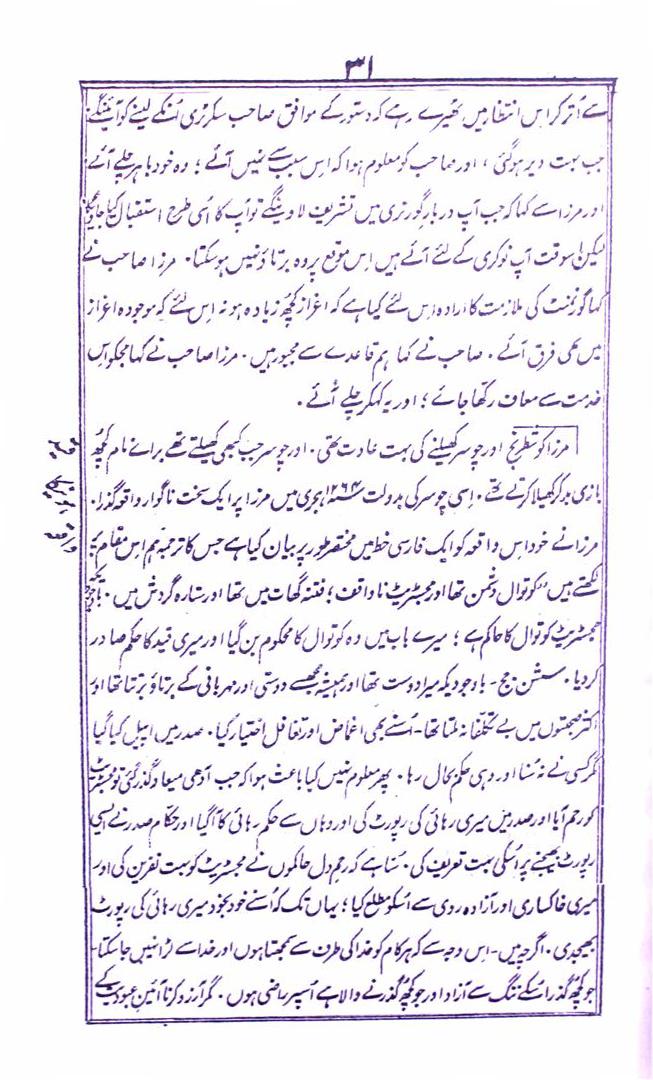 ۳۱
سے اُتر کر اس انتظار میں ٹھیرے رہے کہ دستور کے موافق صاحب سکرٹری اُنکے لینے کو آئینگے
جب بہت دیر ہوگئی ، اور صاحب کو معلوم ہوا کہ اس سبب سے نہیں آئے ؛ وہ خود باہر چلے آئے
اور مرزا سے کہا کہ جب آپ دربار گورنری میں تشریف لاوینگے تو آپ کا اُسی طرح استقبال کیا جاویگا
لیکن اسوقت آپ نوکری کے لئے آئے ہیں اس موقع پر وہ برتاؤ نہیں ہوسکتا ۔ مرزا صاحب نے
کہا گورنمنٹ کی ملازمت کا ارادہ اس لئے کیا ہے کہ اعزاز کچھ زیادہ ہو نہ اس لئے کہ موجودہ اعزاز
میں بھی فرق آئے ۔ صاحب نے کہا ہم قاعدے سے مجبور ہیں ۔ مرزا صاحب نے کہا مجکو اس
خدمت سے معاف رکھا جائے ؛ اور یہ کہکر چلے آئے ۔
مرزا کو شطرنج اور چوسر کھیلنے کی بہت عادت تھی ۔ اور چوسر جب کبھی کھیلتے تھے براے نام کچھ
بازی بدکر کھیلا کرتے تھے ۔ اسی چوسر کی بدولت سنہ ۱۲۶۴ ہجری میں مرزا پر ایک سخت ناگوار واقعہ گذرا ۔
مرزا نے خود اس واقعہ کو ایک فارسی خط میں مختصر طور پر بیان کیا ہے جس کا ترجمہ ہم اس مقام پر
لکھتے ہیں "کوتوال دشمن تھا اور مجسٹریٹ ناواقف ؛ فتنہ گھات میں تھا اور ستارہ گردش میں ۔ باوجودیکہ
مجسٹریٹ کوتوال کا حاکم ہے ؛ میرے باب میں وہ کوتوال کا محکوم بن گیا اور میری قید کا حکم صادر
کردیا ۔ سشن جج - باوجودیکہ میرا دوست تھا اور ہمیشہ مجھسے دوستی اور مہربانی کے برتاؤ برتتا تھا اور
اکثر صحبتوں میں بے تکلفانہ ملتا تھا - اُسنے بھی اغماض اور تغافل اختیار کیا ۔ صدر میں اپیل کیا گیا
مگر کسی نے نہ سُنا اور وہی حکم بحال رہا ۔ پھر معلوم نہیں کیا باعث ہوا کہ جب آدھی میعاد گذر گئی تو مجسٹریٹ
کو رحم آیا اور صدر میں میری رہائی کی رپورٹ کی اور وہاں سے حکم رہائی کا آگیا اور حکّام صدر نے ایسی
رپورٹ بھیجنے پر اُسکی بہت تعریف کی ۔ سُنا ہے کہ رحم دل حاکموں نے مجسٹریٹ کو بہت نفرین کی اور
میری خاکساری اور آزادہ روی سے اُسکو مطلع کیا ؛ یہاں تک کہ اُسنے خودبخود میری رہائی کی رپورٹ
بھیجدی ۔ اگرچہ میں - اس وجہ سے کہ ہر کام کو خدا کی طرف سے سمجھتا ہوں اور خدا سے لڑا نہیں جاسکتا -
جو کچھ گذرا اُسکے ننگ سے آزاد اور جو کچھ گذرنے والا ہے اُسپر راضی ہوں ۔ مگر آرزو کرنا آئین عبودیت کے